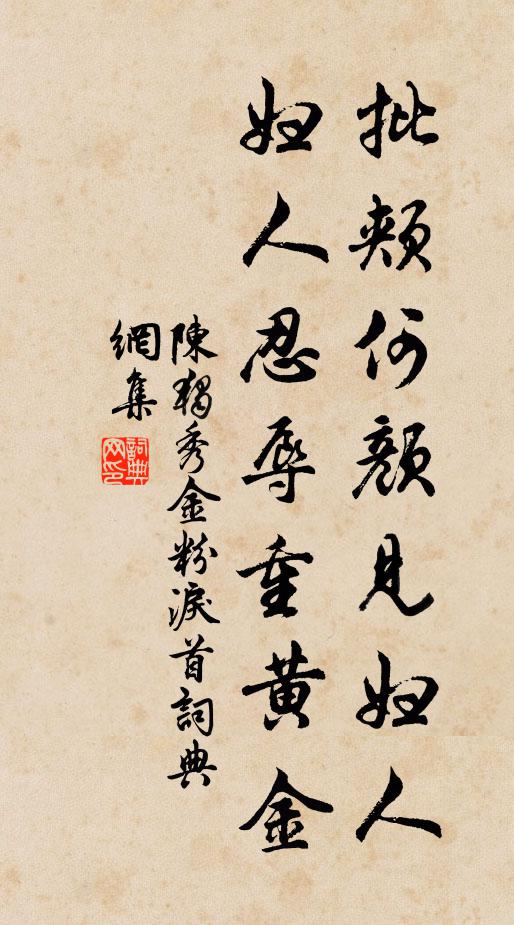 批頰何顏見妇人
妇人忍辱重黃金
陳獨秀金粉淚首詞典
網集
詞典
网印